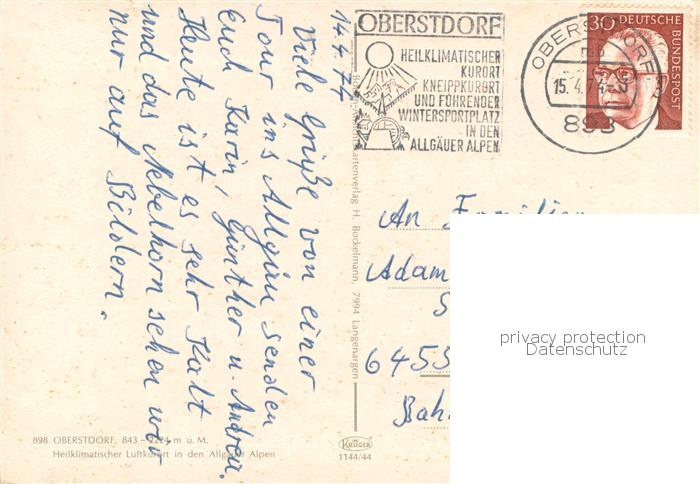 14.4.74
Viele Grüße von einer
Tour ins Allgäu senden
Euch Karin, Günther u. Andrea.
Heute ist es sehr kalt
und das Nebelhorn sehen wir
nur auf Bildern.
898 OBERSTDORF, 843 - 2224 m ü. M.
Heilklimatischer Luftkurort in den Allgäuer Alpen
kartenverlag H. Bockelmann, 7994 Langenargen
KRÜGER
1144/44
OBERSTDORF
HEILKLIMATISCHER
KURORT
KNEIPPKURORT
UND FÜHRENDER
WINTERSPORTPLATZ
IN DEN
ALLGÄUER ALPEN
OBERSTDORF
15.4.74
898
30 DEUTSCHE
BUNDESPOST
An Familie
Adam
S
6453
Bah
privacy protection
Datenschutz